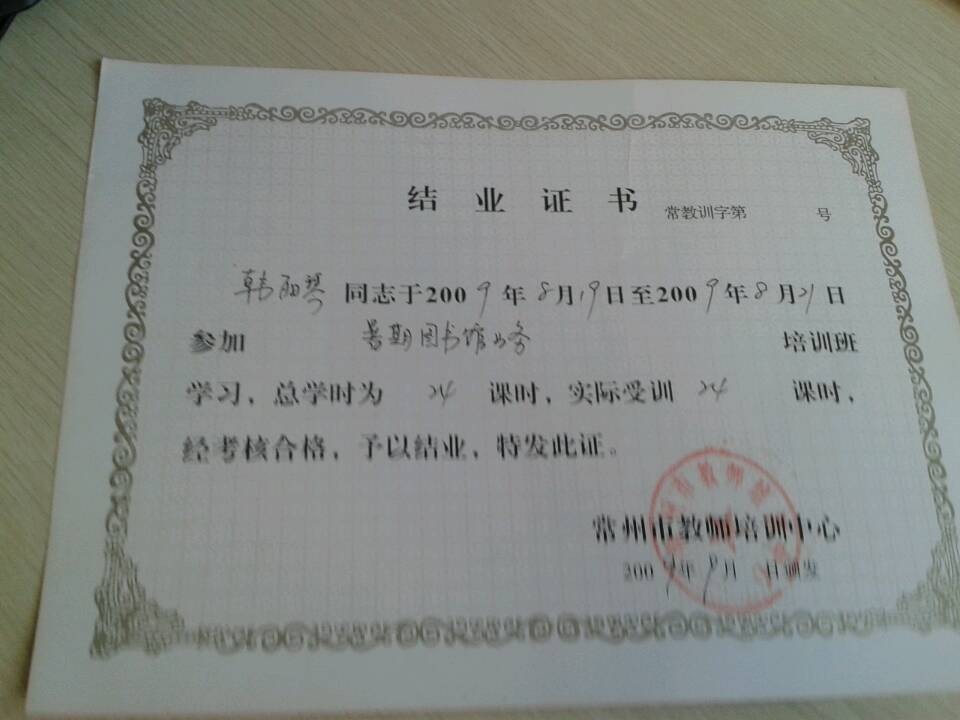 结业证书 常教训字第 号
韩阳琴 同志于2009年8月19日至2009年8月21日
参加 暑期图书馆业务 培训班
学习，总学时为 24 课时，实际受训 24 课时，
经考核合格，予以结业，特发此证。
常州市教师培训中心
2009年9月 日颁发